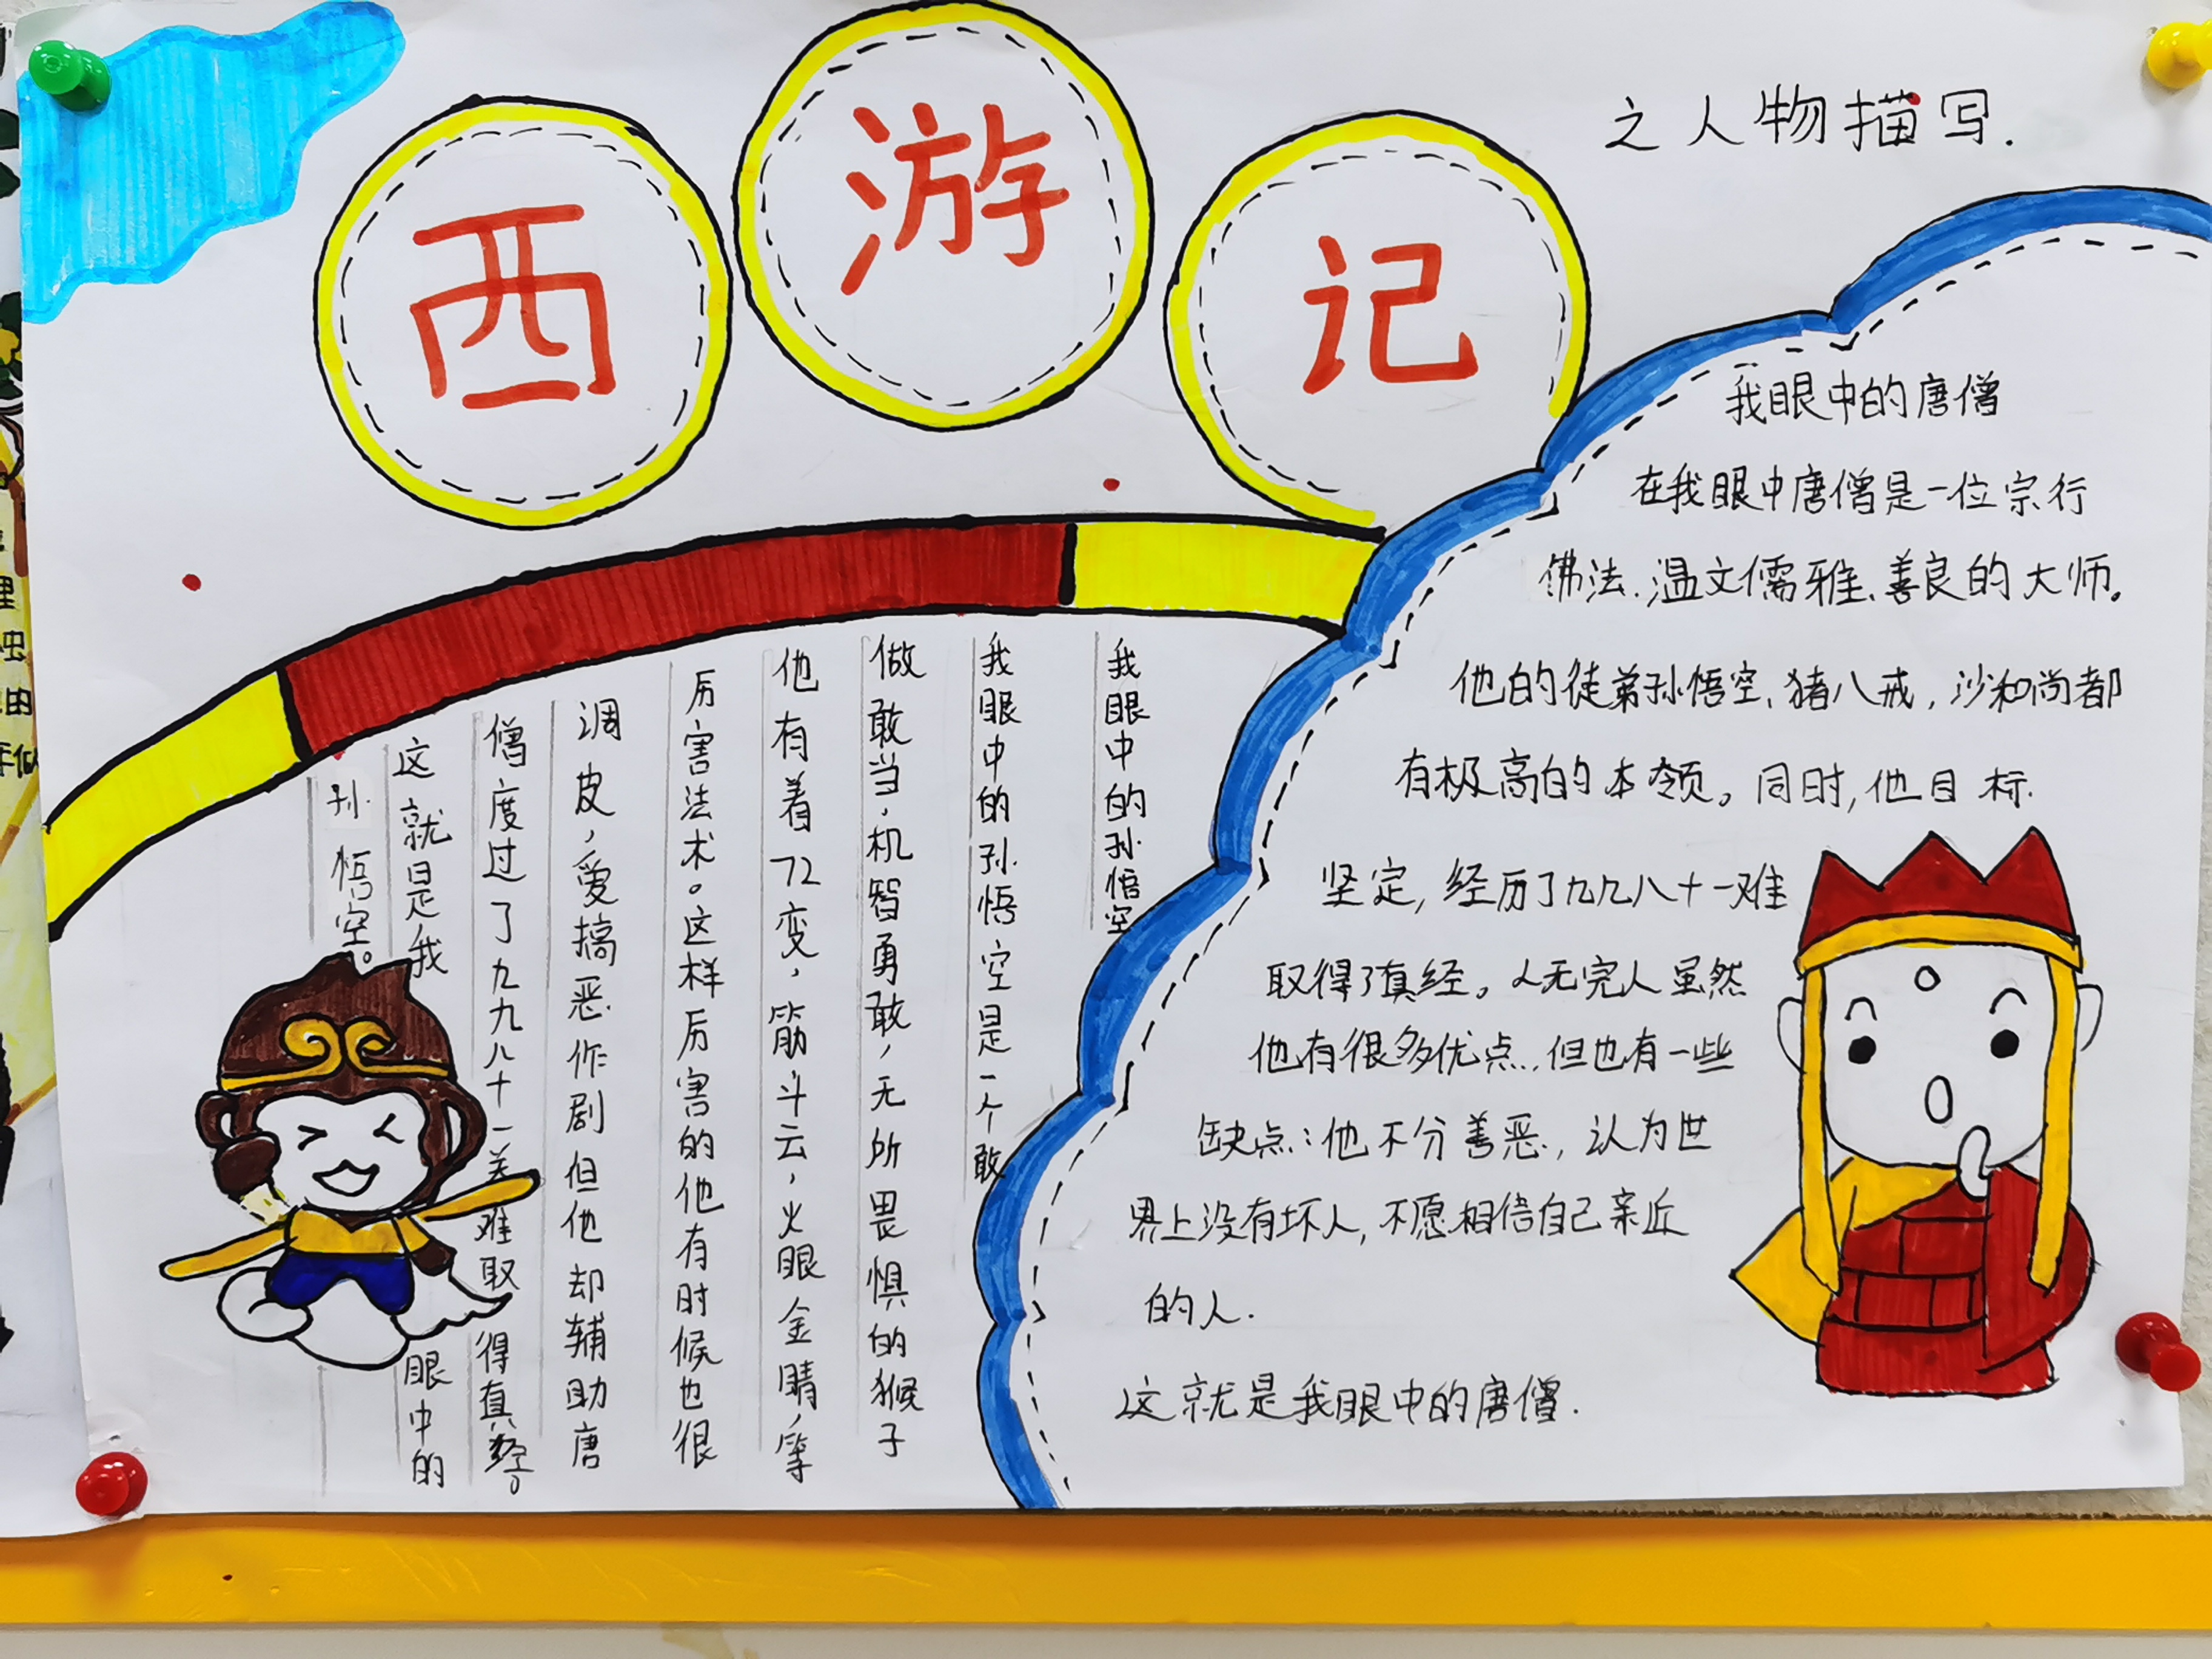 西游记
之人物描写.
我眼中的孙悟空
我眼中的孙悟空是一个敢
做敢当,机智勇敢,无所畏惧的猴子
他有着72变,筋斗云,火眼金睛,等
厉害法术。这样厉害的他有时候也很
调皮,爱搞恶作剧但他却辅助唐
僧度过了九九八十一难取得真经。
这就是我眼中的
孙悟空。
我眼中的唐僧
在我眼中唐僧是一位宗行
佛法.温文儒雅、善良的大师。
他的徒弟孙悟空、猪八戒,沙和尚都
有极高的本领。同时,他目标
坚定,经历了九九八十一难
取得了真经。人无完人虽然
他有很多优点,但也有一些
缺点:他不分善恶,认为世
界上没有坏人,不愿相信自己亲近
的人.
这就是我眼中的唐僧.